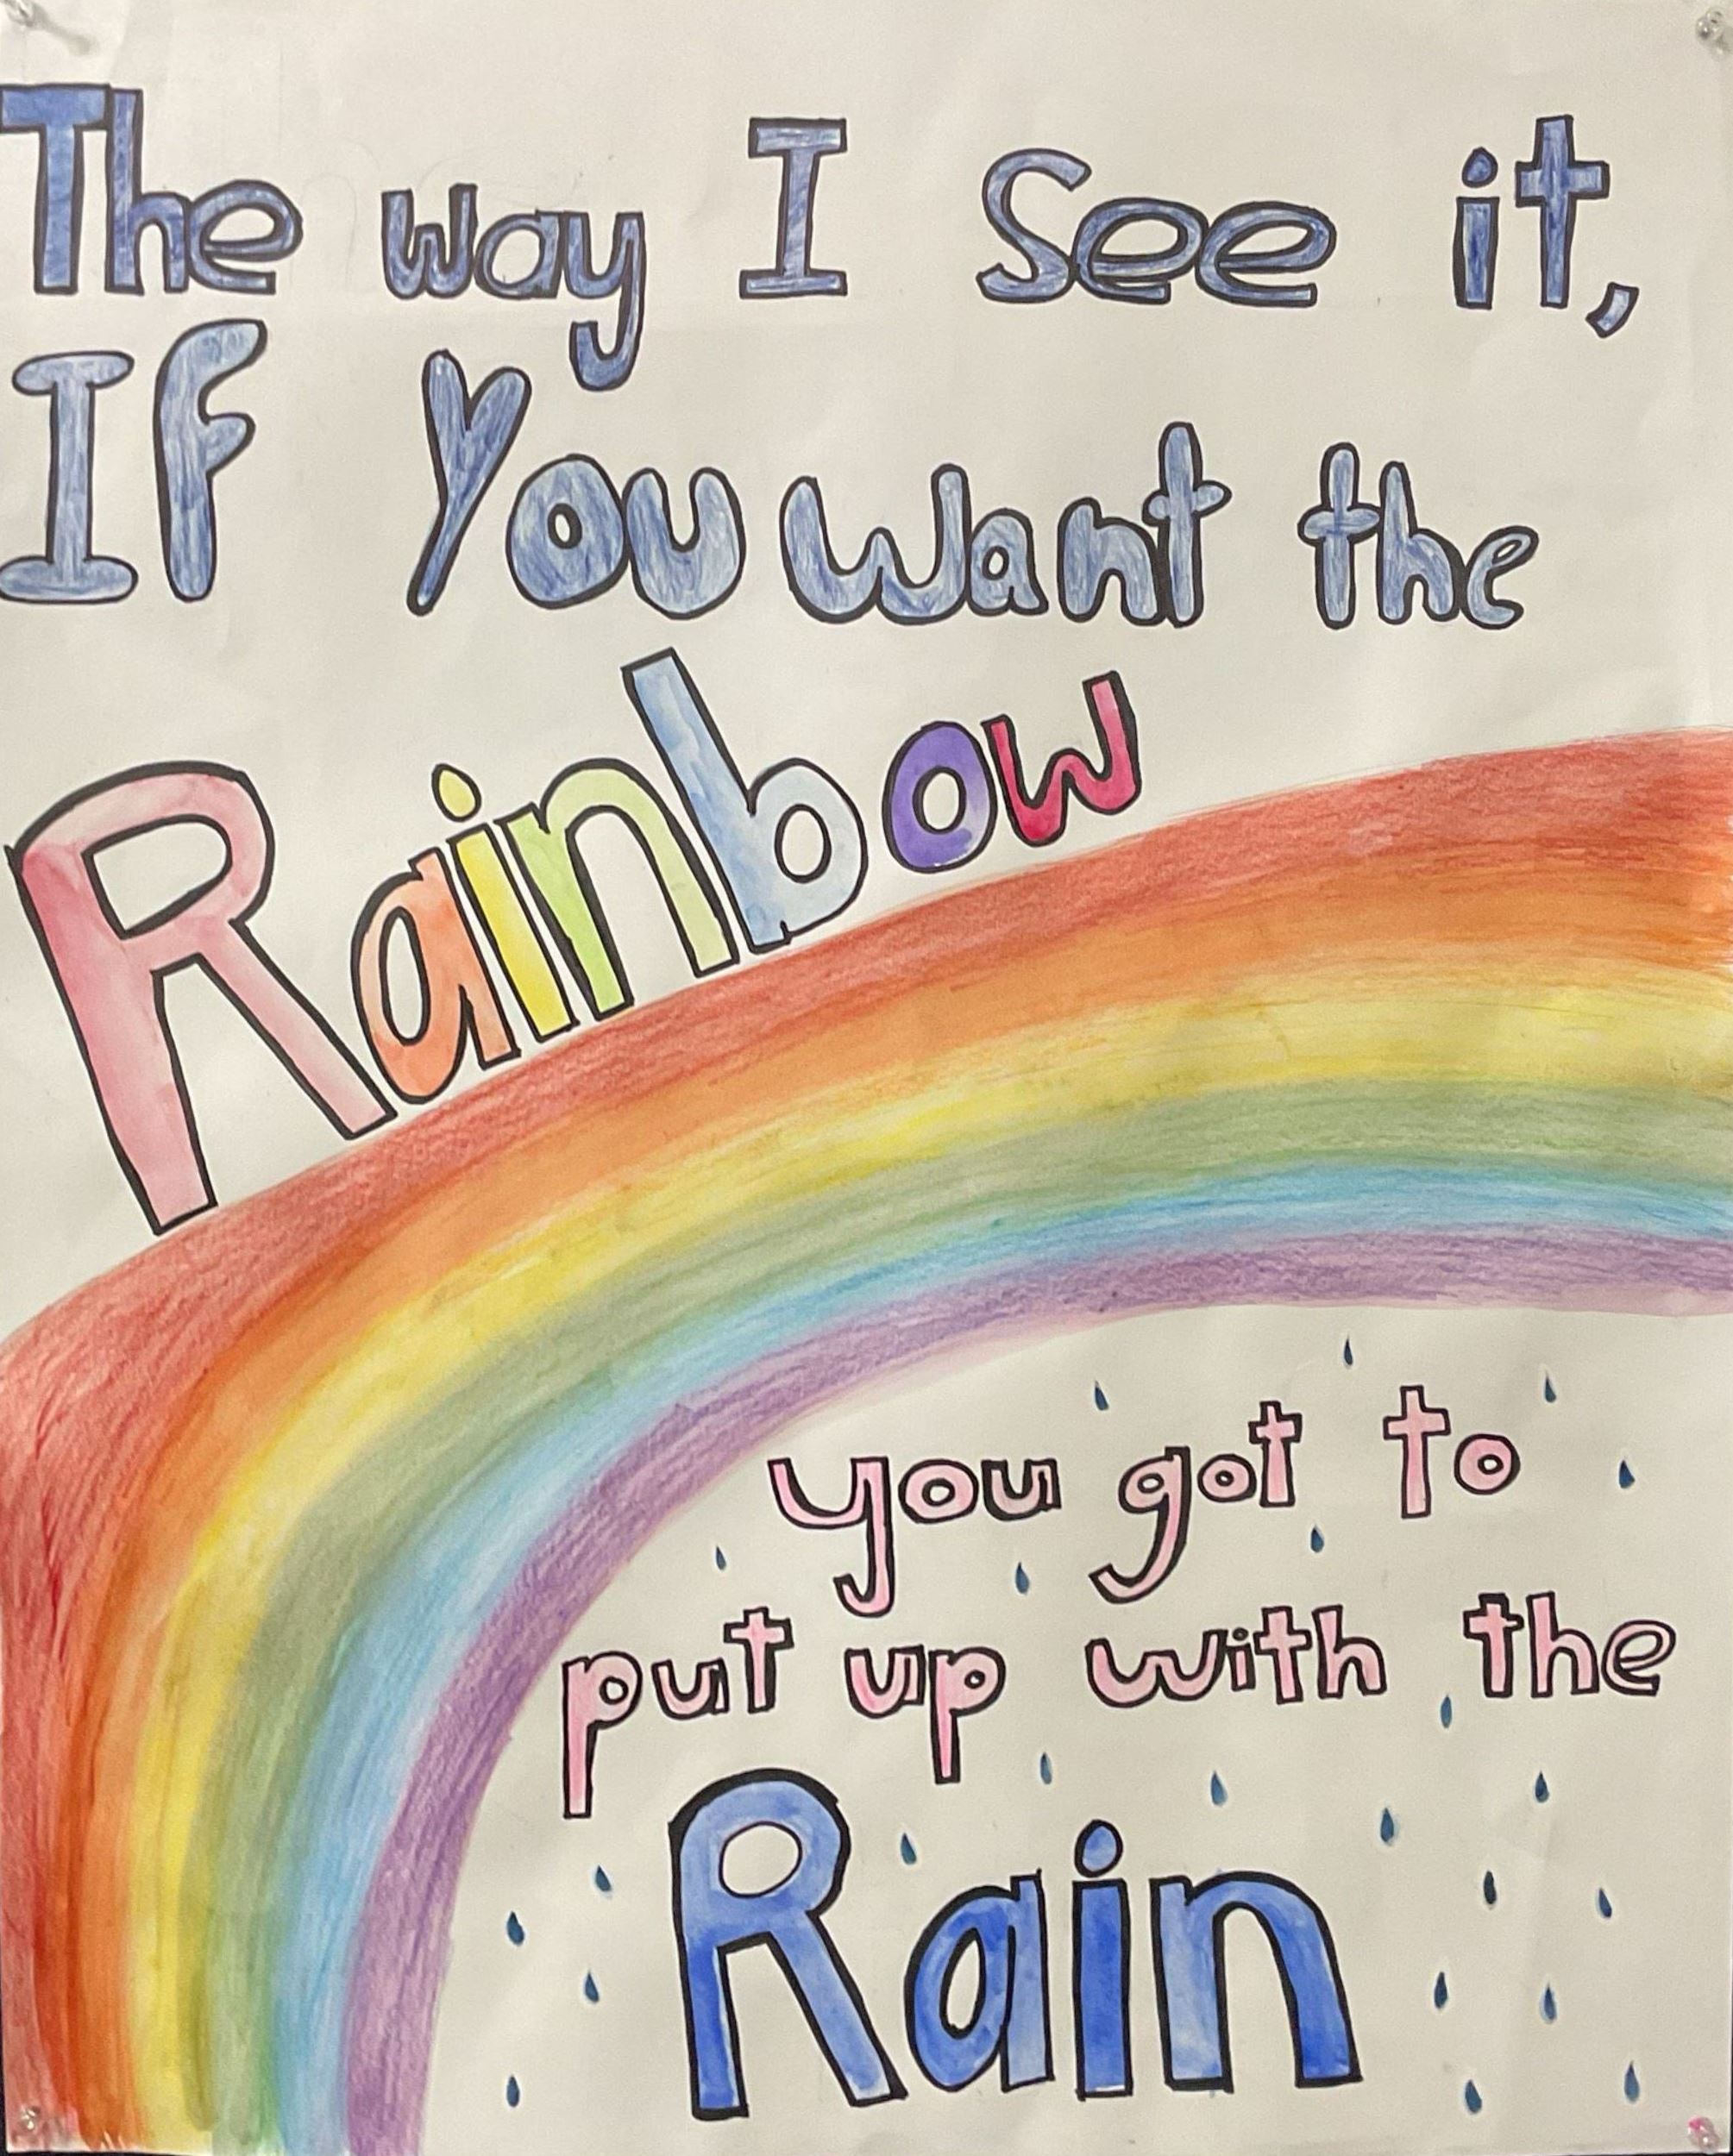 The way I See it,
If You want the
Rainbow
you got to
put up with the
Rain